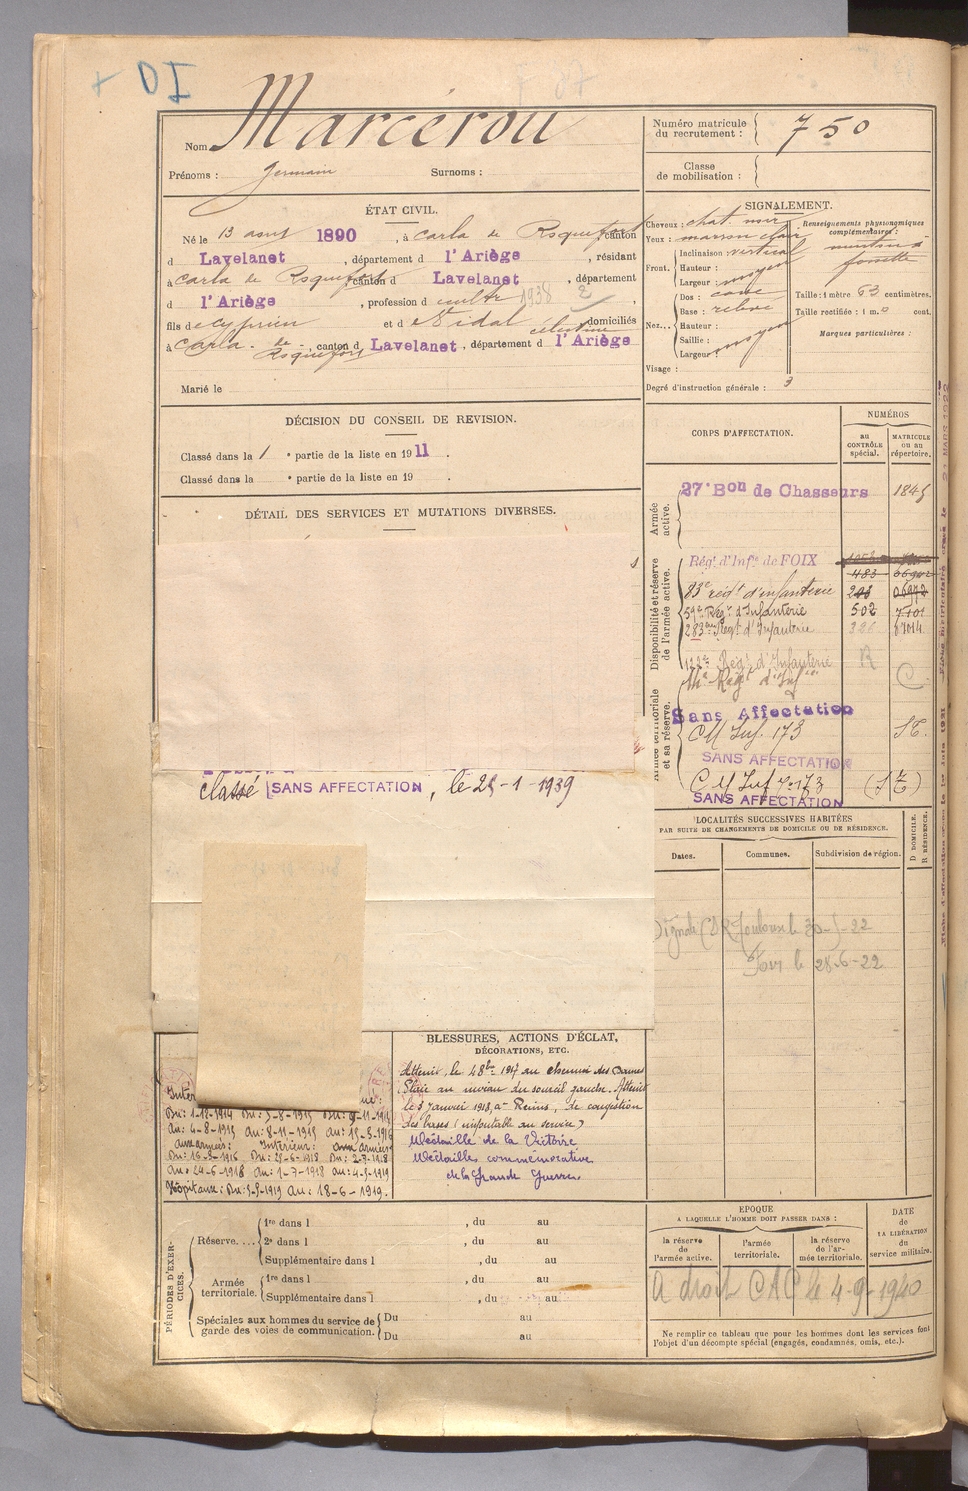 IO
Nom Marcérou
Prénoms : Germain Surnoms :
Numéro matricule du recrutement : 750
Classe de mobilisation :
ÉTAT CIVIL.
Né le 13 août 1890, à Carla de Roquefort, canton
d Lavelanet, département d l'Ariège, résidant
à Carla de Roquefort, canton d Lavelanet, département
d l'Ariège, profession d cultr 1938
fils de Cyprien et de Vidal Célestine domiciliés
à Carla de Roquefort, canton d Lavelanet, département d l'Ariège
Marié le
SIGNALEMENT.
Cheveux : chat. noir
Yeux : marron clair
Front. Inclinaison : vertical
Hauteur :
Largeur : moyen
Nez... Dos : cave
Base : relevé
Hauteur :
Saillie : moyen
Largeur :
Visage :
Degré d'instruction générale : 3
Renseignements physionomiques complémentaires :
menton à
fossette
Taille : 1 mètre 63 centimètres.
Taille rectifiée : 1 m. 0 cent.
Marques particulières :
DÉCISION DU CONSEIL DE REVISION.
Classé dans la 1 e partie de la liste en 1911.
Classé dans la e partie de la liste en 19 .
DÉTAIL DES SERVICES ET MUTATIONS DIVERSES.
classé SANS AFFECTATION, le 25-1-1939
CORPS D'AFFECTATION.
NUMÉROS
au CONTRÔLE spécial.
MATRICULE ou au répertoire.
Armée active.
27e Bon de Chasseurs 1845
Disponibilité et réserve de l'armée active.
Régt d'Infie de FOIX
483
83e régt d'infanterie
59e Régt d'Infanterie 502
283e Régt d'Infanterie 326
122e Régt d'Infanterie R
Armée territoriale et sa réserve.
Régt d'Infie C
Sans Affectation
CM Inf. 173
SANS AFFECTATION
CM Inf no 173
SANS AFFECTATION
LOCALITÉS SUCCESSIVES HABITÉES
PAR SUITE DE CHANGEMENTS DE DOMICILE OU DE RÉSIDENCE.
Dates. Communes. Subdivision de région. D DOMICILE. R RÉSIDENCE.
Toulouse le 30- -22
Foix le 28-6-22
BLESSURES, ACTIONS D'ÉCLAT,
DÉCORATIONS, ETC.
Atteint, le 4 8bre 1917 au chemin des Dames
Plaie au niveau du sourcil gauche. Atteint
le 3 Janvier 1918, à Reims, de congestion
des bases (imputable au service)
Médaille de la Victoire
Médaille commémorative
de la Grande Guerre
Du : 1-12-1914 Du : 5-8-1915 Du : 9-11-1915
Au : 4-8-1915 Au : 8-11-1915 Au : 15-8-1916
aux armées : Intérieur : aux armées
Du : 16-8-1916 Du : 25-6-1918 Du : 2-7-1918
Au : 24-6-1918 Au : 1-7-1918 Au : 4-5-1919
Hôpitaux : Du : 5-5-1919 Au : 18-6-1919.
PÉRIODES D'EXERCICES.
Réserve.... 1re dans l , du au
2e dans l , du au
Supplémentaire dans l , du au
Armée territoriale. 1re dans l , du au
Supplémentaire dans l , du au
Spéciales aux hommes du service de garde des voies de communication. Du au
Du au
EPOQUE
A LAQUELLE L'HOMME DOIT PASSER DANS :
la réserve de l'armée active.
l'armée territoriale.
la réserve de l'armée territoriale.
DATE de LA LIBÉRATION du service militaire.
A droit CAC le 4-9-1940
Ne remplir ce tableau que pour les hommes dont les services font
l'objet d'un décompte spécial (engagés, condamnés, omis, etc.).